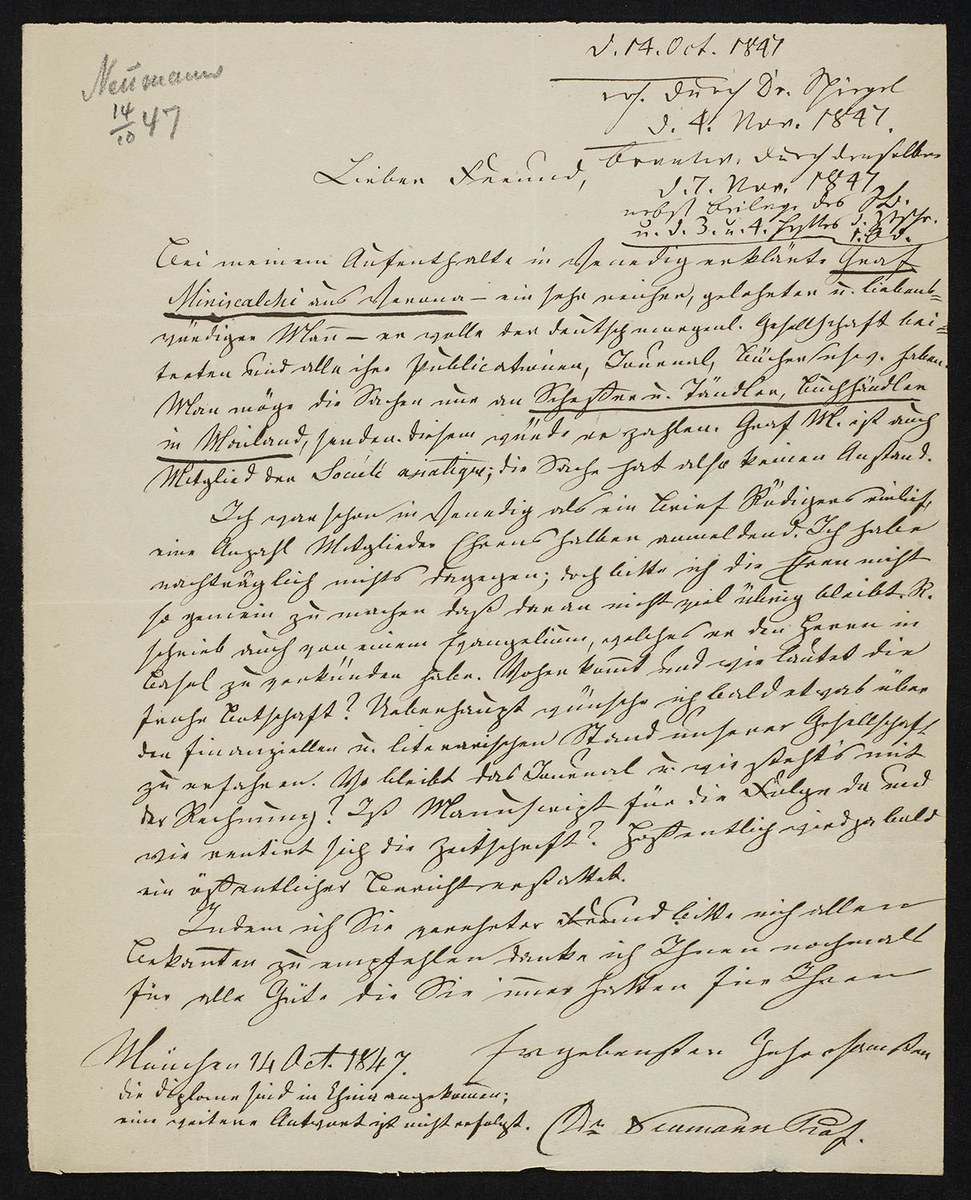 Neumann
14/10 47
d. 14. Oct. 1847
erh. durch Dr. Spiegel
d. 4. Nov. 1847.
beantw. durch denselben
d. 7. Nov. 1847
nebst Beilage des
u. d. 3. u. 4. Heftes d. Ztschr.
1. Bd.
Lieber Freund,
Bei meinem Aufenthalte in Venedig erklärte Graf
Miniscalchi aus Verona – ein sehr reicher, gelehrter u. liebens=
würdiger Mann – er wolle der deutsch morgenl. Gesellschaft bei=
treten und alle ihre Publicationen, Journal, Bücher usw. haben.
Man möge die Sachen nur an Scheffer u. Tändler, Buchhändler
in Mailand, senden. diesem würde er zahlen. Graf M. ist auch
Mitglied der Société asiatique; die Sache hat also keinen Anstand.
Ich war schon in Venedig als ein Brief Rödigers einlief,
eine Anzahl Mitglieder Ehrenshalber anmeldend. Ich habe
nachträglich nichts dagegen; doch bitte ich die Ehre nicht
so gemein zu machen daß daran nicht viel übrig bleibt. R.
schrieb auch von einem Evangelium, welches er den Herrn in
Basel zu verkünden habe. Woher kommt und wie lautet die
frohe Botschaft? Ueberhaupt wünsche ich bald etwas über
den finanziellen u. literarischen Stand unserer Gesellschaft
zu erfahren. Wo bleibt das Journal u. wie steht's mit
der Rechnung? Ist Manuscript für die Folge da und
wie rentirt sich die Zeitschrift? Hoffentlich wird ja bald
ein öffentlicher Bericht erstattet.
Indem ich Sie verehrter Freund bitte mich allen
Bekannten zu empfehlen danke ich Ihnen nochmals
für alle Güte die Sie immer hatten für Ihren
Ergebensten Gehorsamsten
München 14 Oct. 1847.
die Diplome sind in China angekommen;
eine weitere Antwort ist nicht erfolgt.
Dr Neumann Prof.